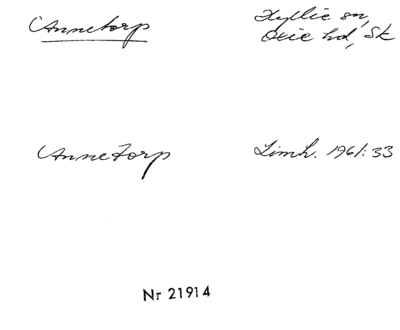 Annetorp
Hyllie sn,
Oxie hd, Sk
Annetorp
Limh. 1961:33
Nr 21914